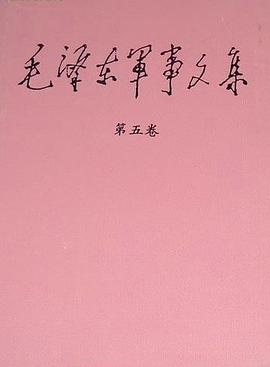 毛泽东军事文集
第五卷